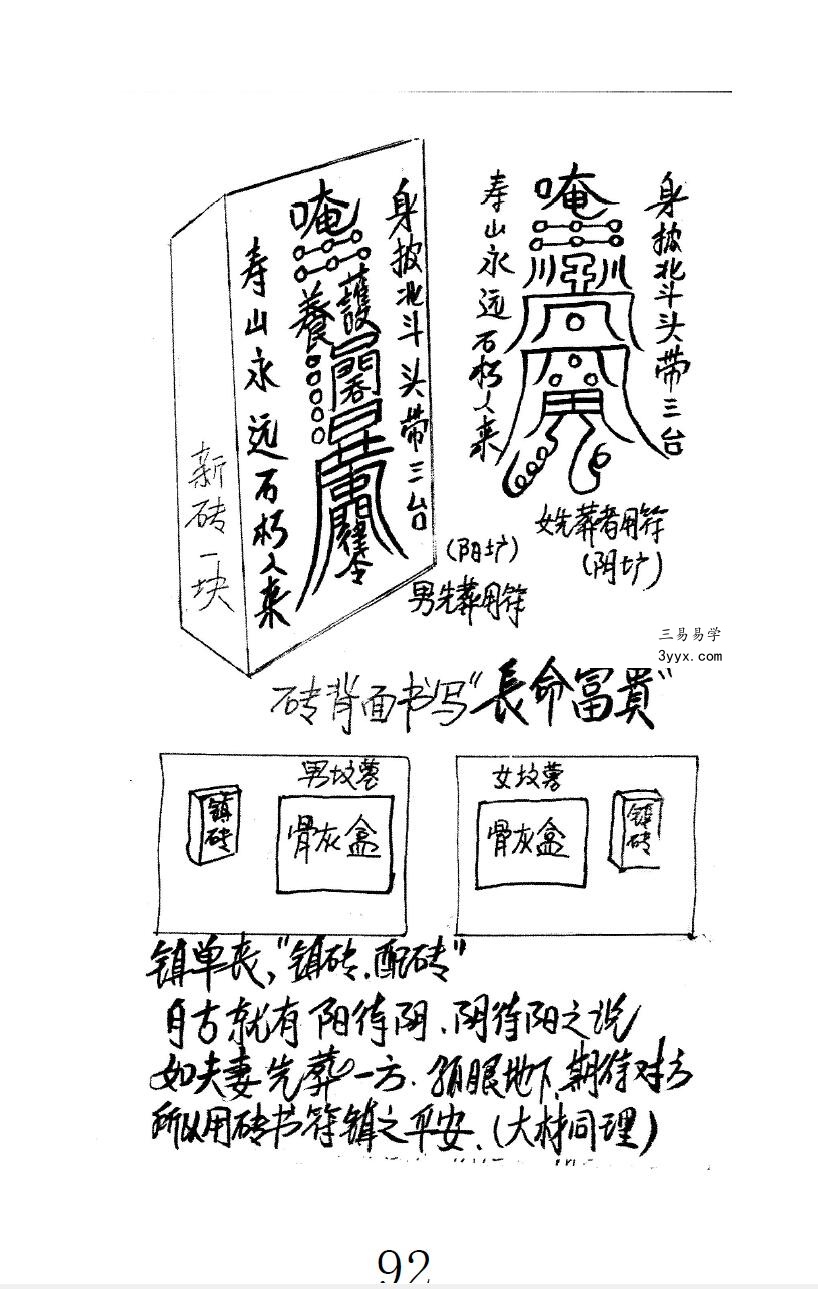 身披北斗头带三台
唵
護
養
寿山永远石朽人来
新砖一块
(阳圹)
男先葬用符
身披北斗头带三台
唵
寿山永远石朽人来
女先葬者用符
(阴圹)
三易易学
3yyx.com
砖背面书写“長命富貴”
男坟墓
镇砖
骨灰盒
女坟墓
骨灰盒
镇砖
镇单丧,“镇砖.配砖”
自古就有阳待阴.阴待阳之说
如夫妻先葬一方.眼地下.期待对方
所以用砖书符镇之平安.(大材同理)
92